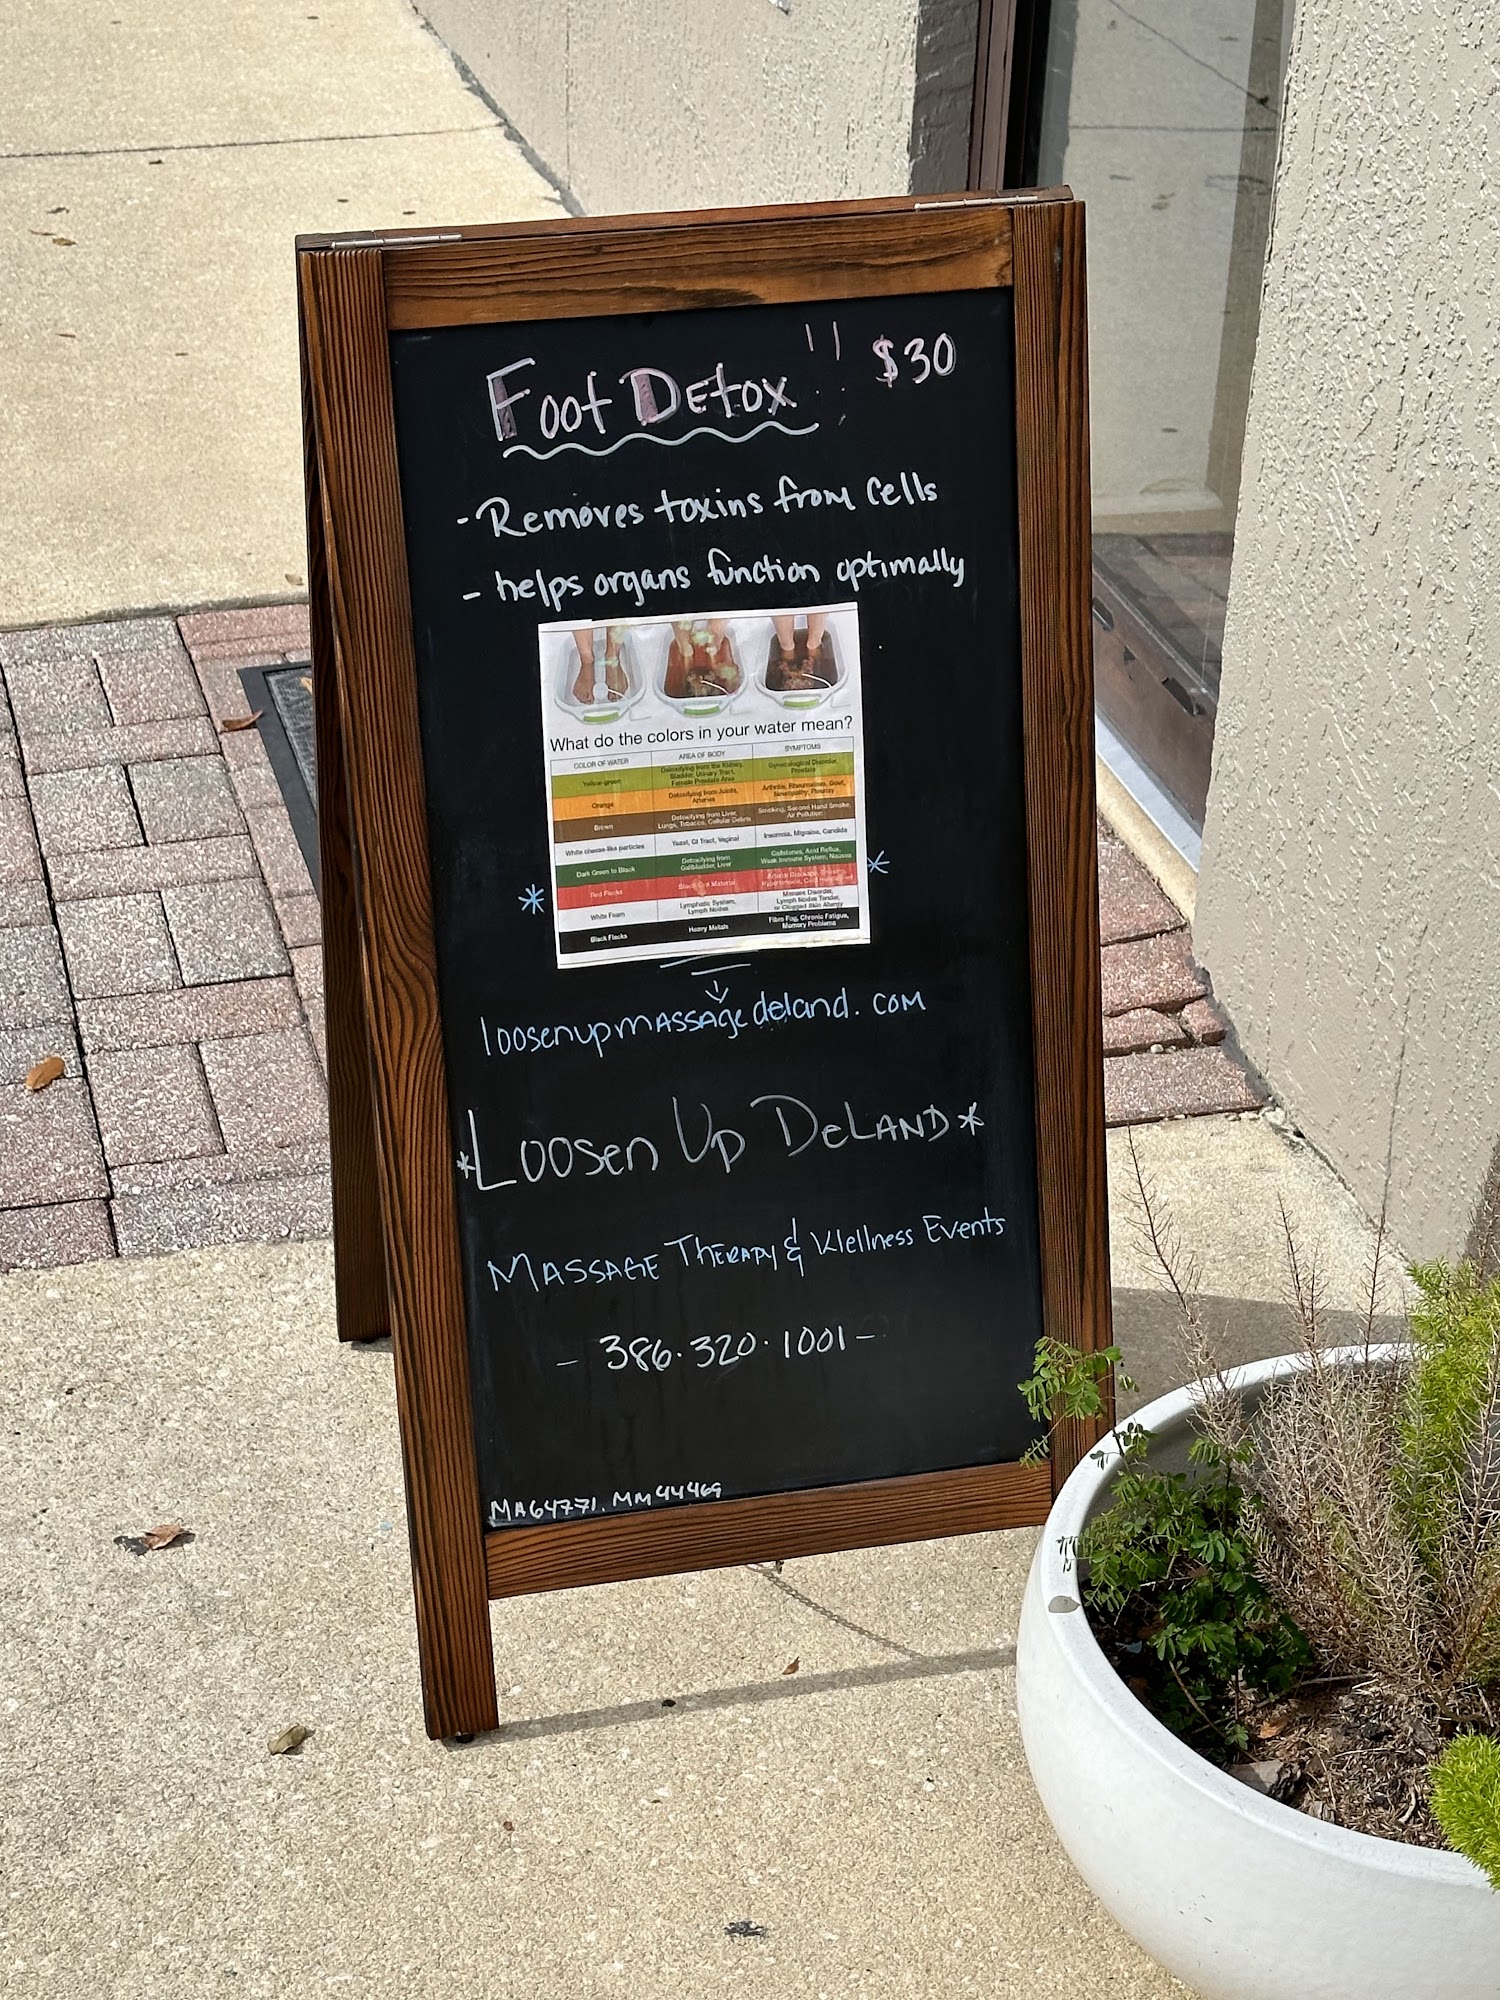 Foot Detox!! $30
- Removes toxins from cells
- helps organs function optimally
What do the colors in your water mean?
COLOR OF WATER AREA OF BODY SYMPTOMS
Yellow-green Detoxifying from the Kidney, Bladder, Urinary Tract, Female Prostate Area Gynecological Disorder, Prostate
Orange Detoxifying from Joints, Arteries Arthritis, Rheumatism, Gout,
Brown Detoxifying from Liver, Lungs, Tobacco, Cellular Debris Smoking, Second Hand Smoke, Air Pollution
White cheese-like particles Yeast, GI Tract, Vaginal Insomnia, Migraine, Candida
Dark Green to Black Detoxifying from Gallbladder, Liver Gallstones, Acid Reflux, Weak Immune System, Nausea
Red Flecks Blood Clot Material
White Foam Lymphatic System, Lymph Nodes Lymph Nodes Tender, or Clogged Skin Allergy
Black Flecks Heavy Metals Fibro Fog, Chronic Fatigue, Memory Problems
loosenupmassagedeland.com
*Loosen Up DeLand*
Massage Therapy & Wellness Events
- 386.320.1001 -
MA64771. MM44469